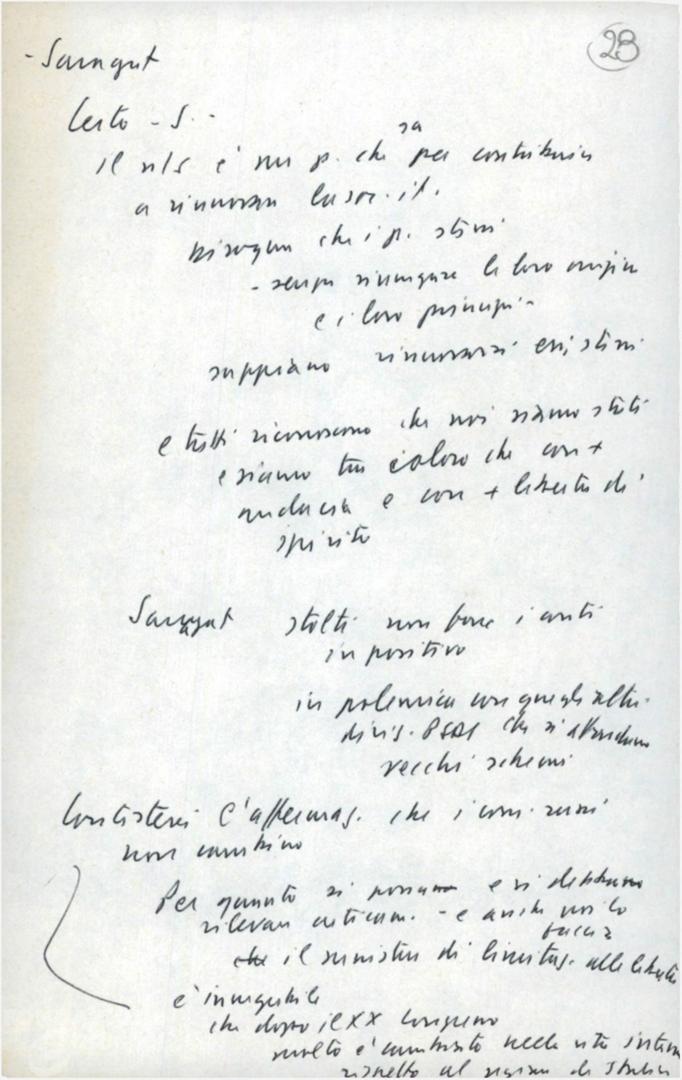 23
- Saragat
Certo - S. -
il n/s è un p. che sa per contribuire
a rinnovare la soc. it.
bisogna che i p. stessi
- senza rinnegare le loro origini
e i loro principi -
sappiano rinnovarsi essi stessi
e tutti riconoscono che noi siamo stati
e siamo tra coloro che con +
audacia e con + libertà di
spirito
Saragat stolti non fare i conti
in positivo
in polemica con quegli altri
dirig. PSDI che si attardano
vecchi schemi
Contesterei l'affermaz. che i com. russi
non cambino
Per quanto si possano e si debbano
rilevare criticam. - e anche noi lo
facc.
che il sussistere di limitaz. alle libertà
è innegabile
che dopo il XX Congresso
molto è cambiato nella vita interna
rispetto al regime di Stalin